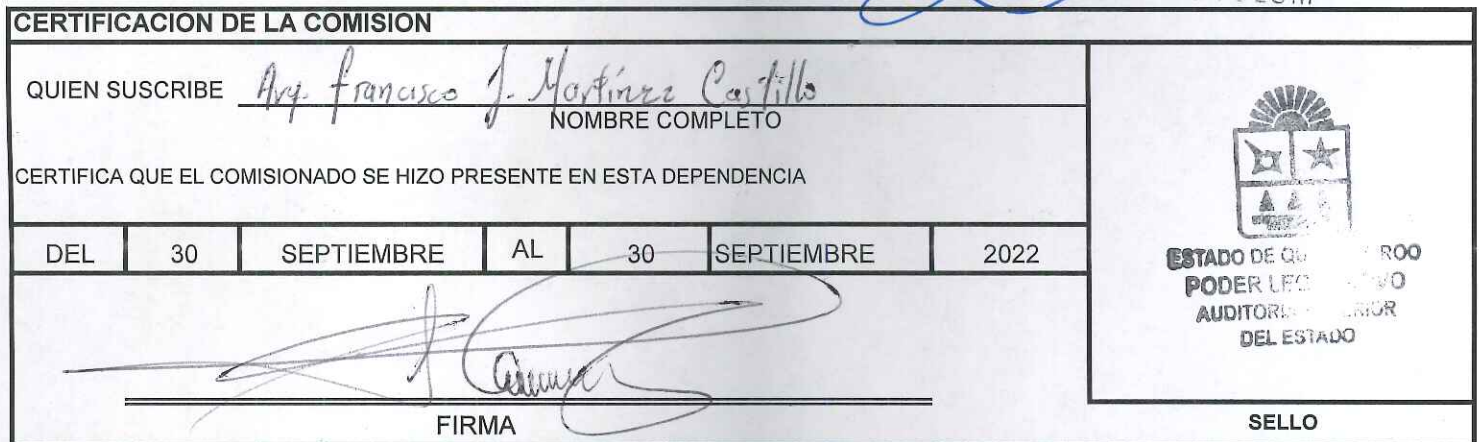 CERTIFICACION DE LA COMISION
QUIEN SUSCRIBE Arq. Francisco J. Martínez Castillo
NOMBRE COMPLETO
CERTIFICA QUE EL COMISIONADO SE HIZO PRESENTE EN ESTA DEPENDENCIA
DEL 30 SEPTIEMBRE AL 30 SEPTIEMBRE 2022
ESTADO DE ROO
PODER
DEL ESTADO
FIRMA
SELLO